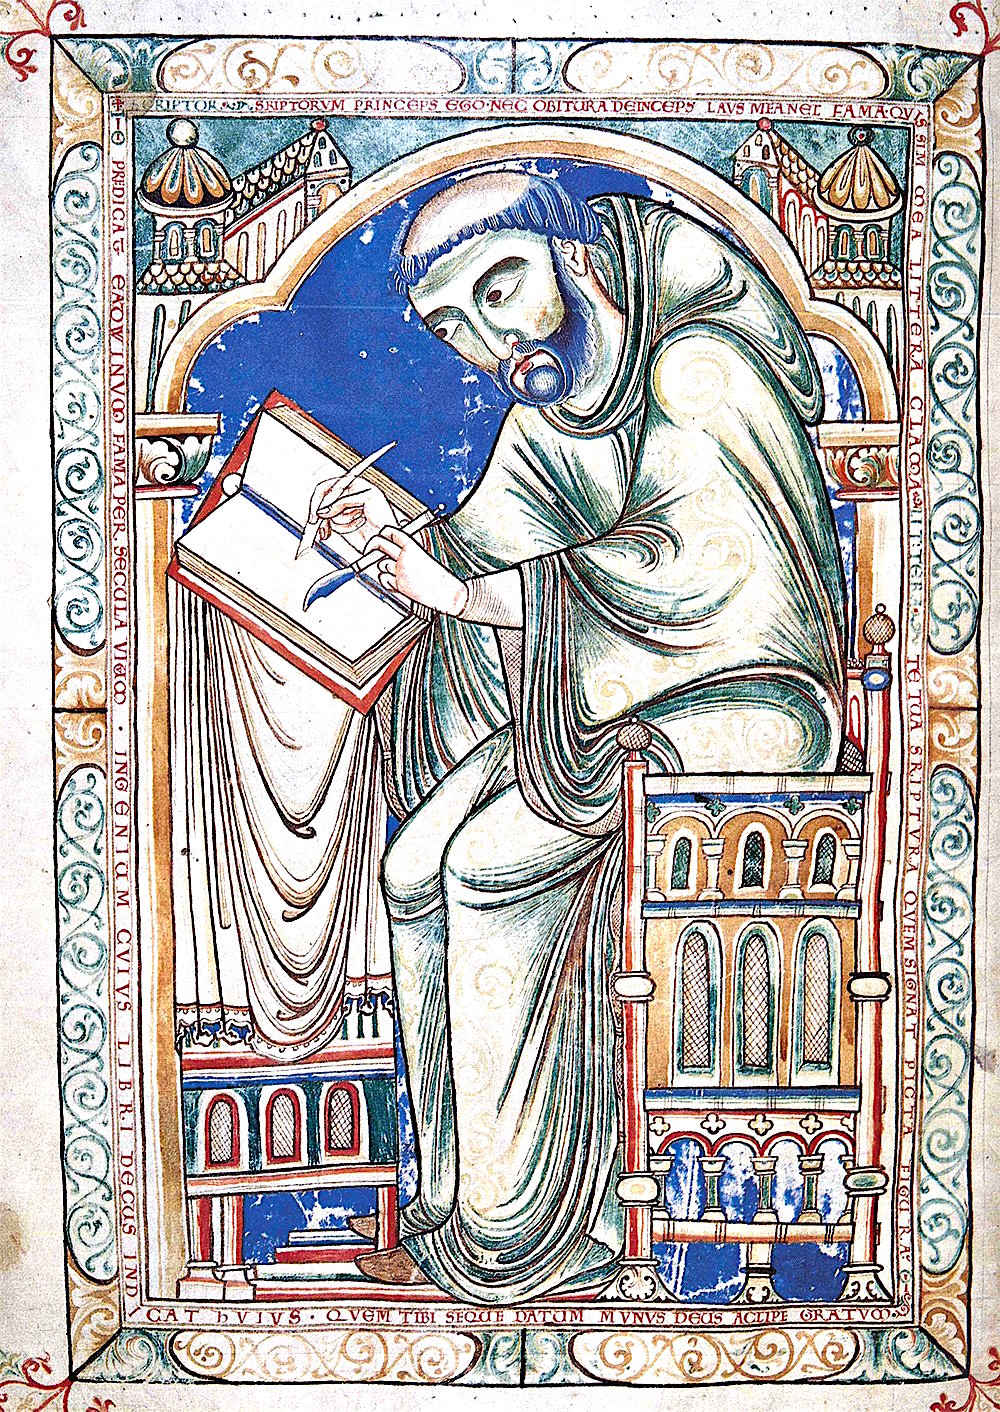 SCRIPTOR SCRIPTORVM PRINCEPS EGO·NEC OBITURA DEINCEPS LAVS MEA NEC FAMA·QVIS
SIM MEA LITTERA CLAMA· LITTER· TE TUA SCRIPTVRA QVEM SIGNAT PICTA FIGURA
PREDICAT EADWINVM FAMA PER SECULA VIVUM · INGENIUM CVIVS LIBRI DECUS INDI
CAT HVIVS · QVEM TIBI SEQUE DATUM MVNVS DEUS ACCIPE GRATVM